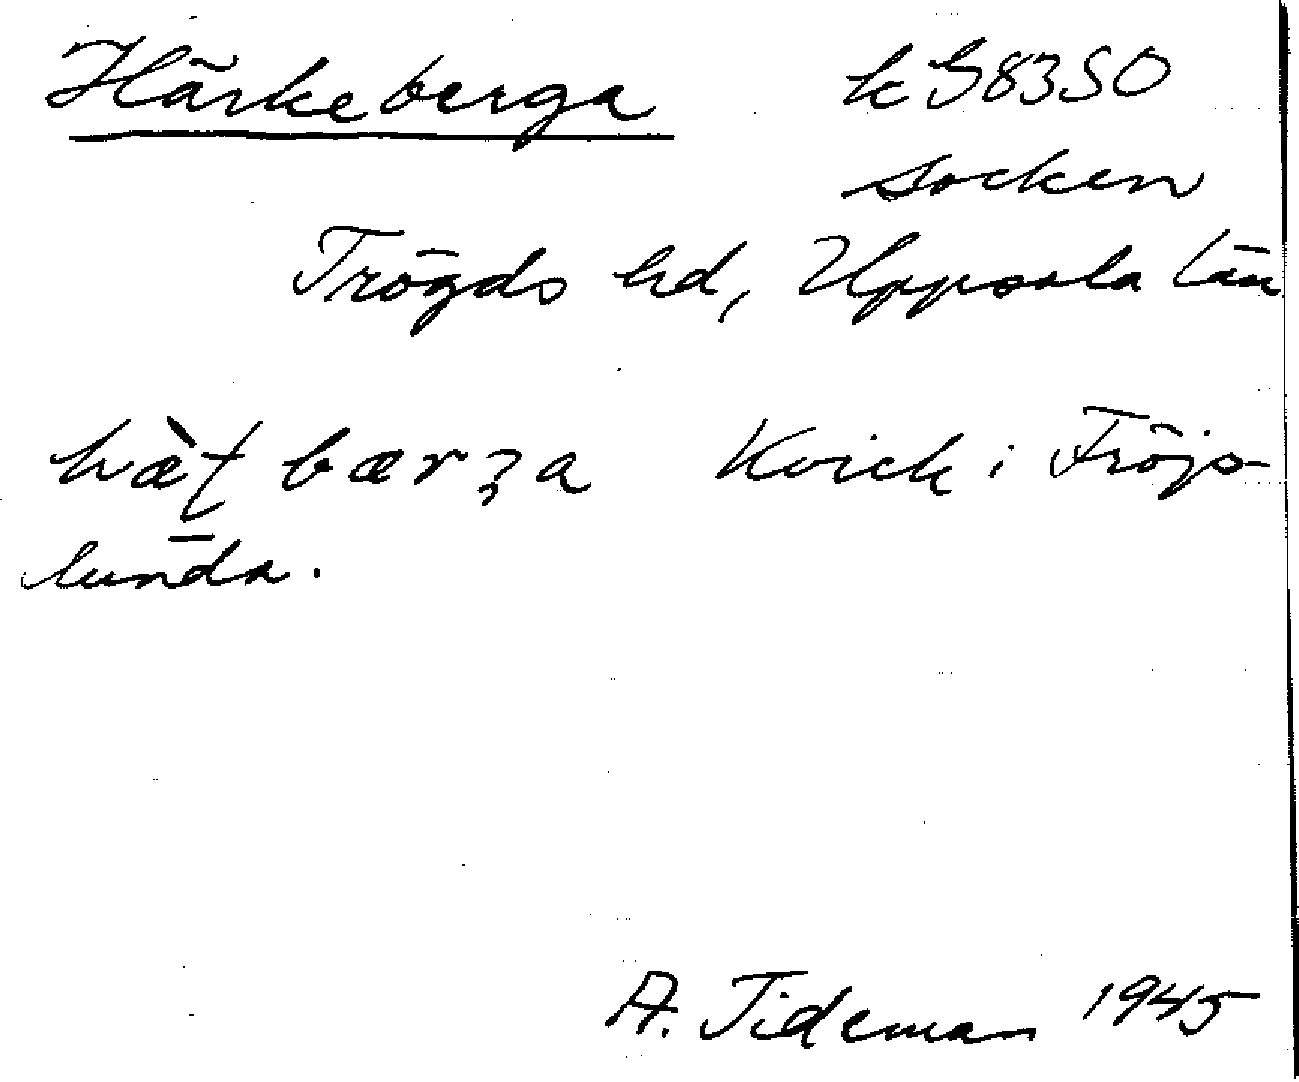 Härkeberga k G8350
socken
Trögds hd, Uppsala län
hæ̀ʈ bærʒa Kvick i Fröjs-
lunda.
A. Tideman 1945